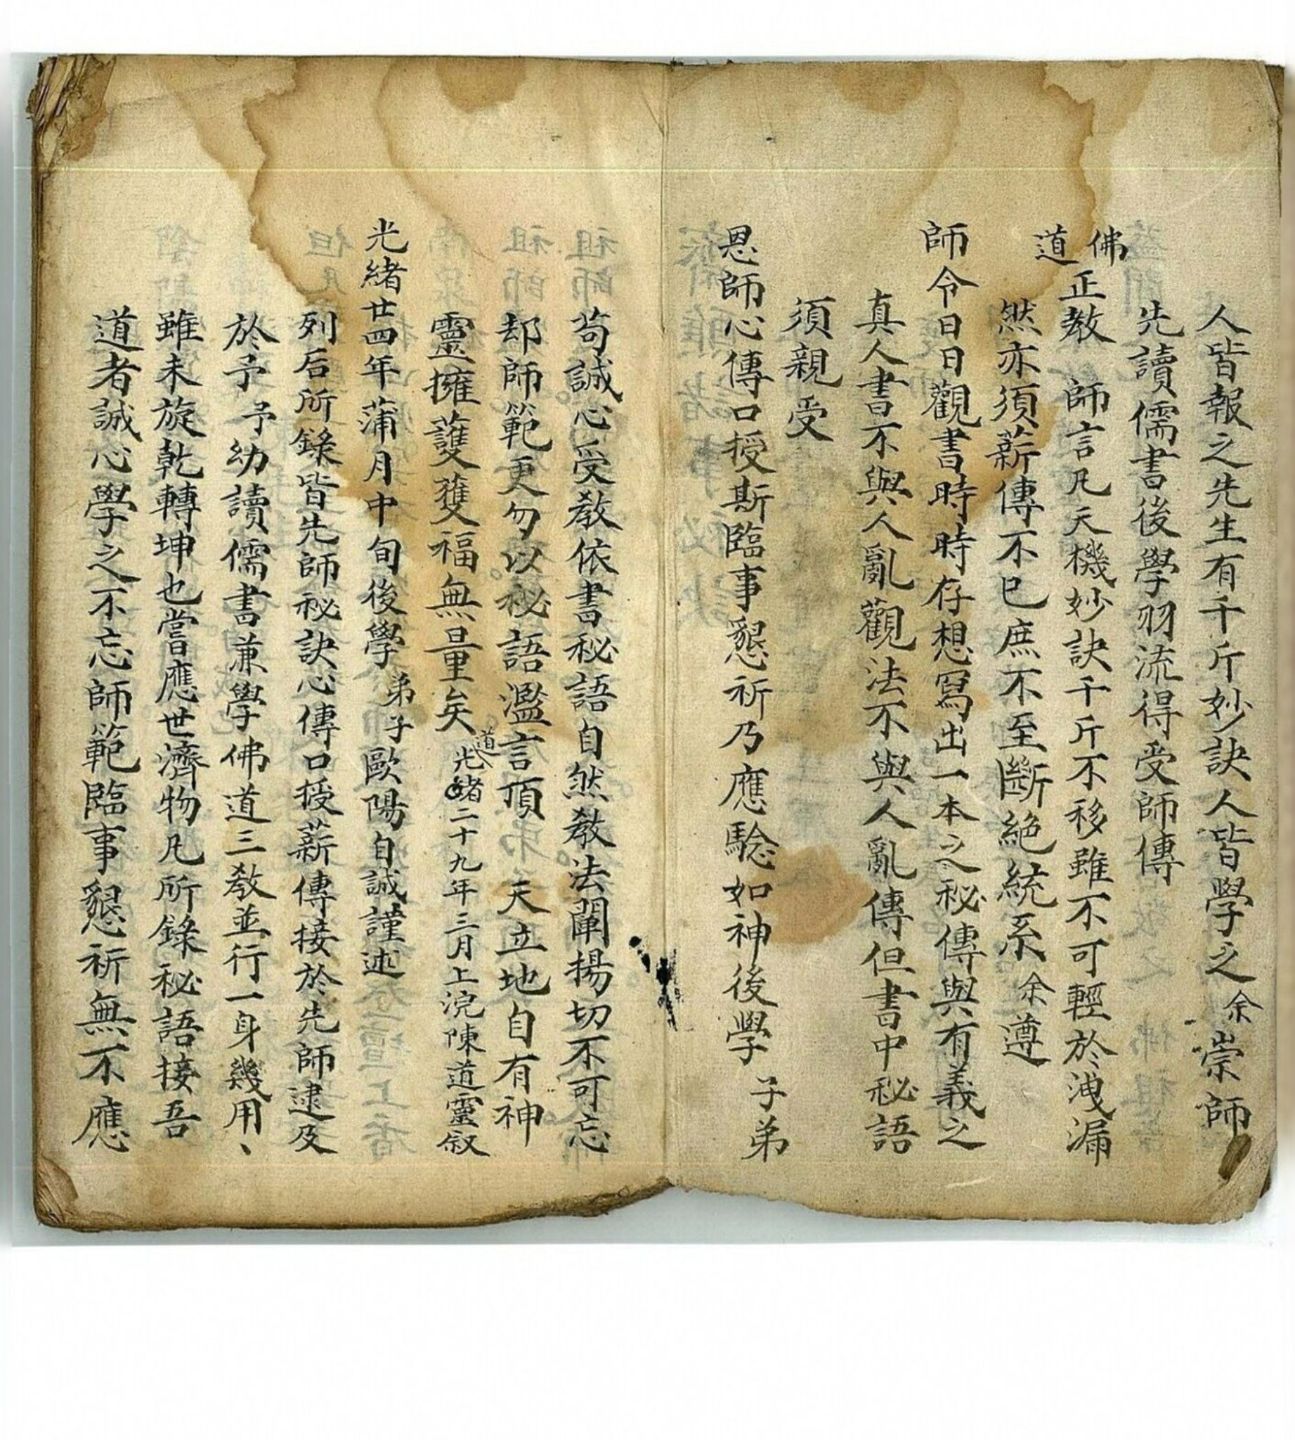 人皆報之先生有千斤妙訣人皆學之余崇師
先讀儒書後學羽流得受師傳
佛道正教 師言凡天機妙訣千斤不移雖不可輕於洩漏
然亦須薪傳不已庶不至斷絕統系余遵
師令日日觀書時時存想寫出一本之秘傳與有義之
真人書不與人亂觀法不與人亂傳但書中秘語
須親受
恩師心傳口授斯臨事懇祈乃應驗如神後學子弟
苟誠心受教依書秘語自然教法闡揚切不可忘
却師範更勿以秘語濫言頂天立地自有神
靈擁護獲福無量矣 光緒二十九年三月上浣陳道靈叙
道
光緒廿四年蒲月中旬後學弟子歐陽自誠謹述
列后所錄皆先師秘訣心傳口授薪傳接於先師逮及
於予予幼讀儒書兼學佛道三教並行一身幾用、
雖未旋乾轉坤也嘗應世濟物凡所錄秘語接吾
道者誠心學之不忘師範臨事懇祈無不應